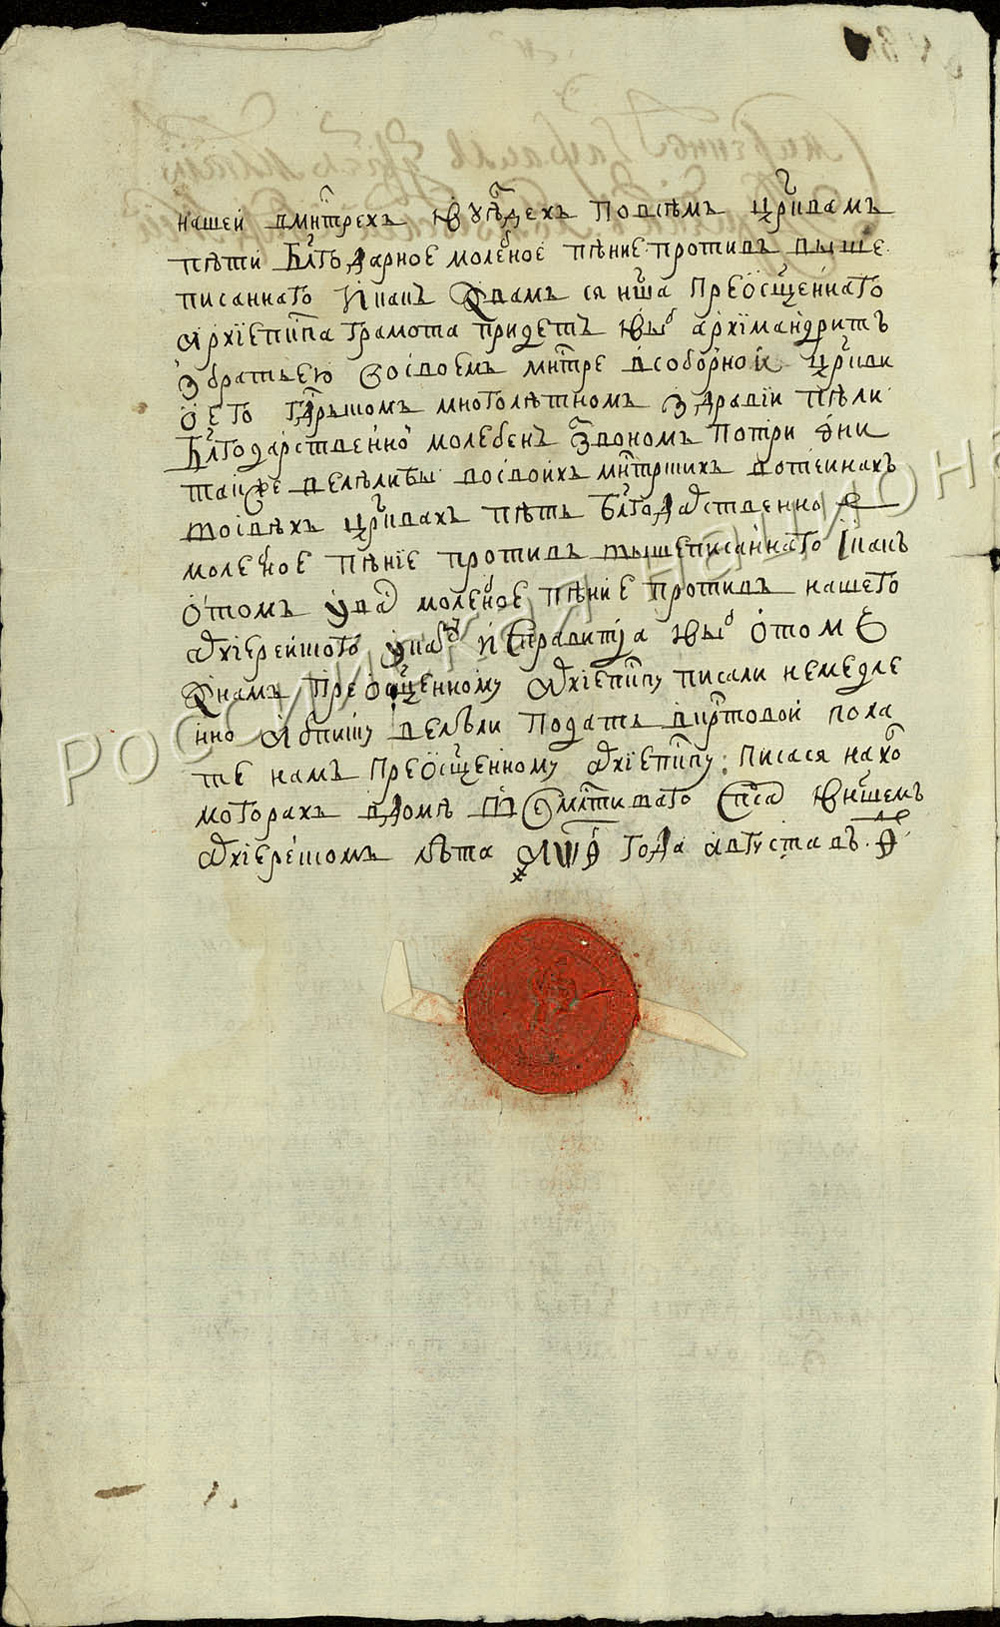 нашей вмнтрехъ и уѣздехъ повсѣмъ црквамъ
пѣти блгодарное молебное пѣние противъ выше
писаннаго и какъ к вамъ ся нша преосщеннаго
архїепкпа грамота придетъ и вы б архїмандритъ
з братьею во своемъ мнтре в соборной цркви
о его гдрьском многолѣтном здравїи пѣли
блгодарственной молебенъ звономъ по три дни
также велѣли бы во своихъ мнтрских вотчинахъ
во всѣхъ црквахъ пѣть блгодарственное
молебное пѣнїе противъ вышеписаннаго и какъ
о томъ указ молебное пѣние противъ нашего
архїерейского указу исправитца и вы б о томъ
к намъ преосщенному архїепкпу писали немедле
нно а отписку велѣли подать в крстовой пола
те намъ преосщенному архїепкпу. писася на хо
могорах в домѣ всемлтиваго спса и ншемъ
архїерейском лѣта ҂аѱѳ года августа въ ѳ
Российская национа